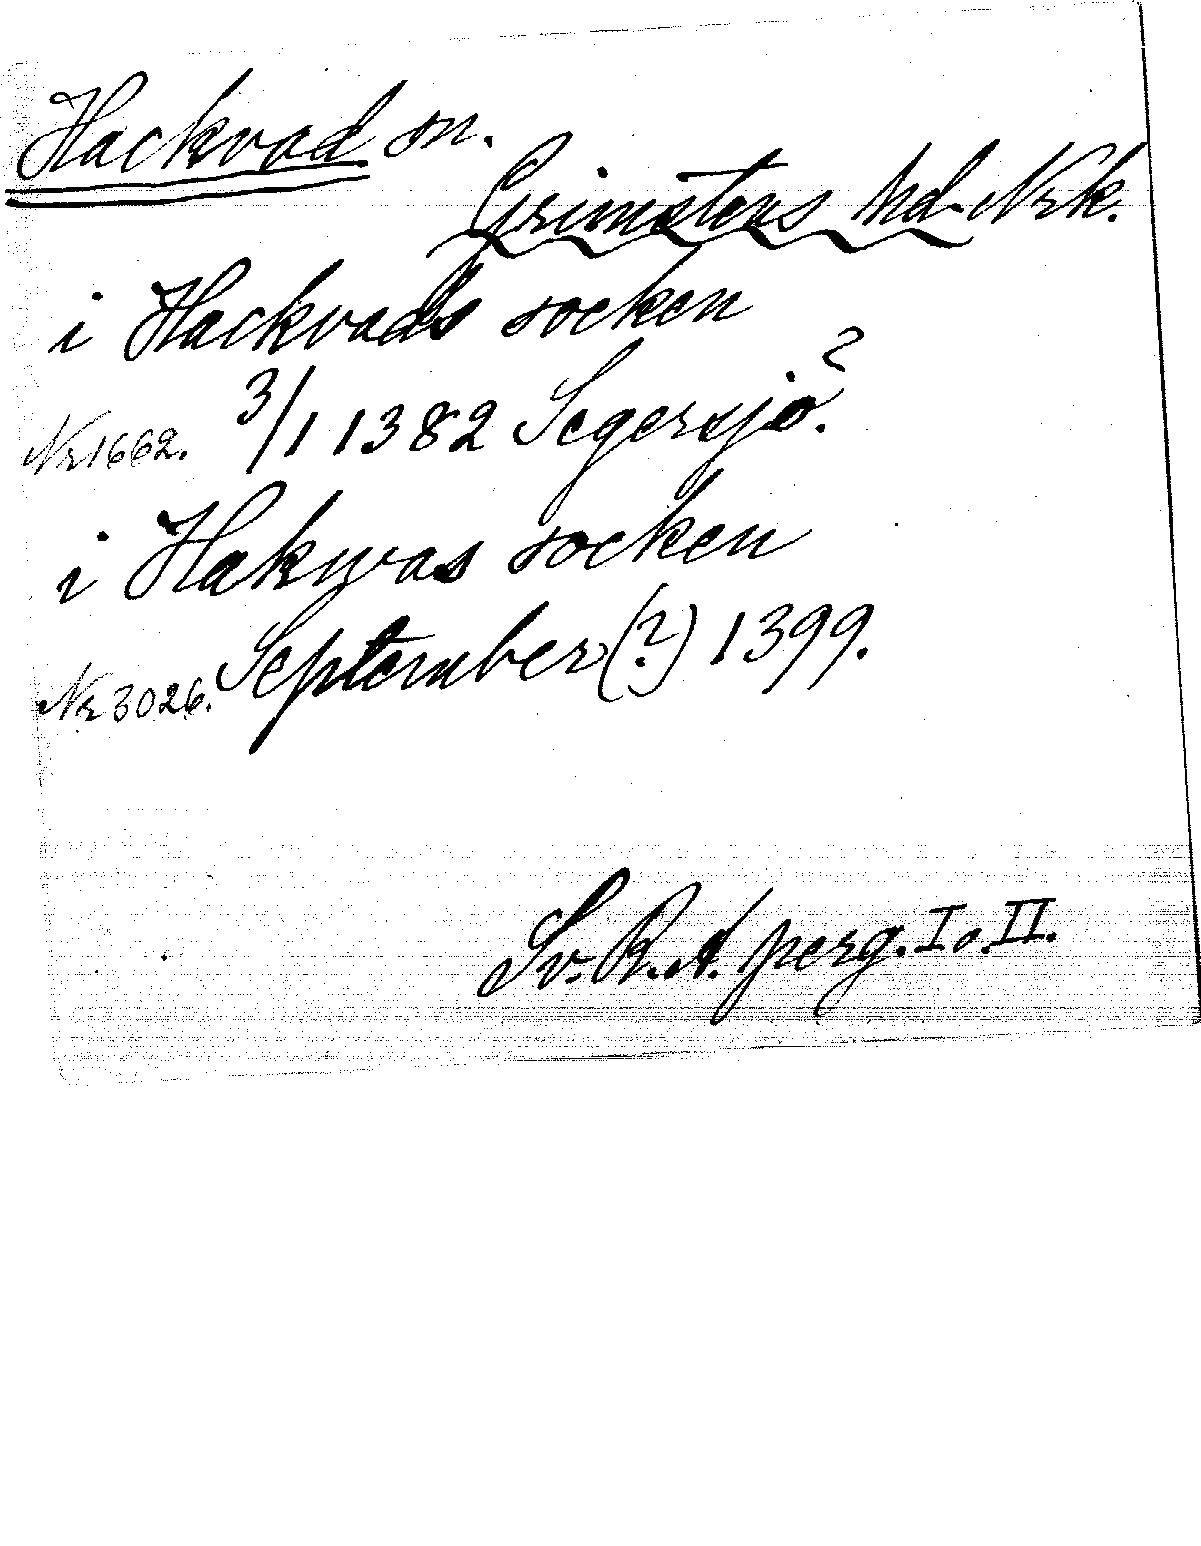 Hackvad sn.
Grimstens hd Nrk.
i Hackvads socken
Nr 1662. 3/1 1382 Segersjö?
i Hakwas socken
Nr 3026. September (?) 1399.
Sv. R. A. perg. I o. II.